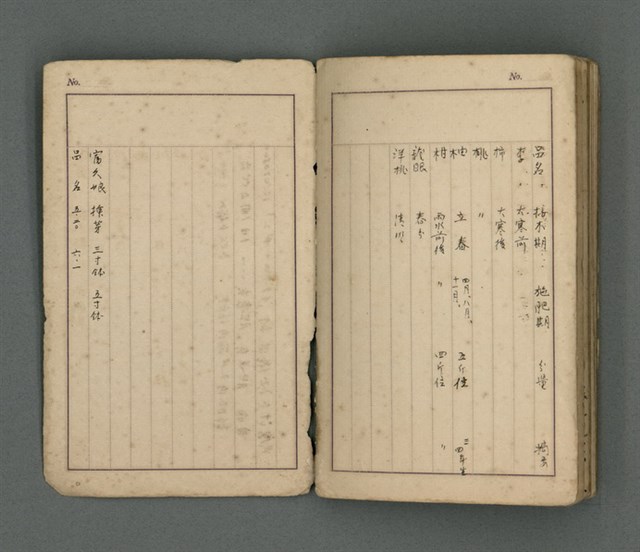 No.
品名、 接木期、 施肥期 分量 摘要
李、 大寒前
柿 大寒後
桃 〃
柚 立春 四月、八月、十一月、 五斤位 三四年生
柑 雨水前後 〃 四斤位 〃
龍眼 春分
洋桃 清明
No.
富久娘 摘芽 三寸鉢 五寸鉢
品名 五、